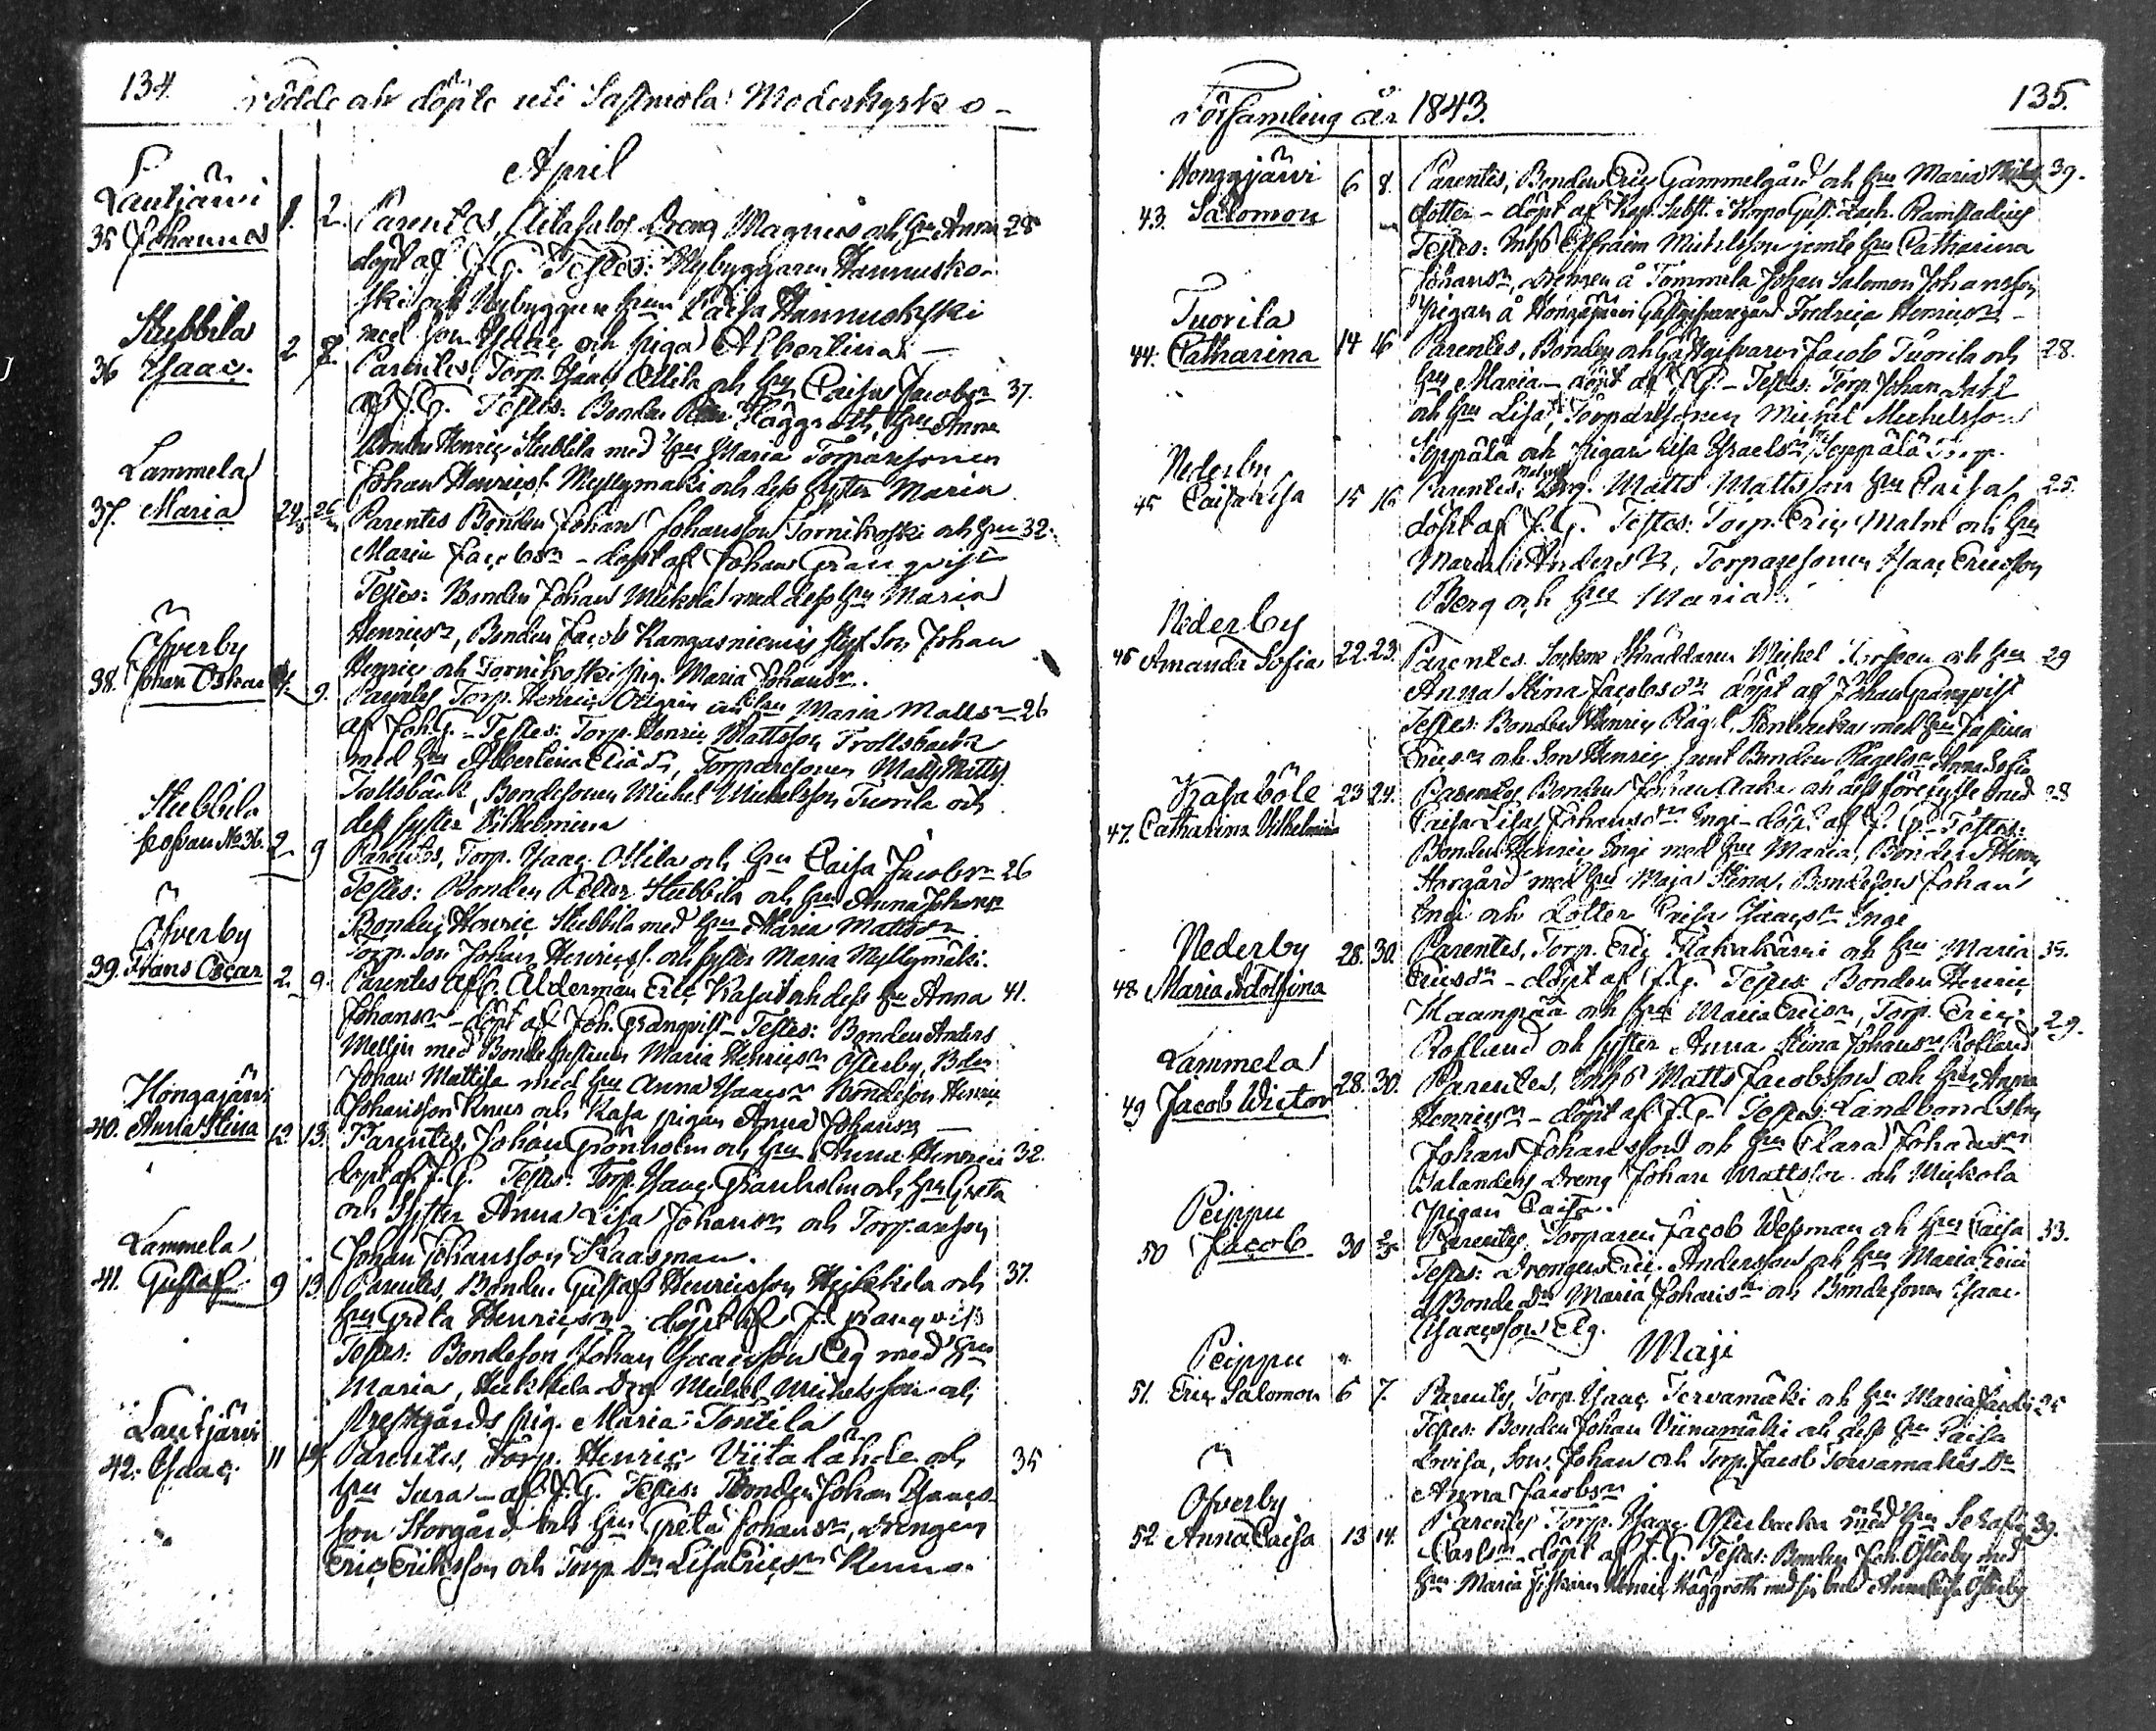 134.
Födde och döpte uti Sastmola Moderkyrko-
April
Lautjärvi
35 Johannes 1. 2. Parentes, Drong Magnus och hru Anna 28
döpt af J. G. Testes: Nybyggaren Hannusko-
ski och Nybyggare hru Caisa Hannuskoski
med son Isaac och piga Albertina —
Stubbila
36 Isaac. 2 Parentes, Torp. Isaac Ollila och hru Caisa Jacobsdr 37.
af J. G. Testes: Bonden Häggroth, hru Anna
Bonden Henric Stubbila med hru Maria Torparesonen
Johan Henrics. Myllymäki och dess syster Maria
Lammela
37. Maria 24 26 Parentes Bonden Johan Johansson Tornikoski och hru 32.
Maria Jacobsdr – döpt af Johan Granqvist
Testes: Bonden Johan Mickola med dess hru Maria
Henricsdr, Bonden Jacob Kangasniemis Son Johan
Henric och Tornikoski pig. Maria Johansdr.
Öfverby
38. Johan Oskar 9. Parentes Torp. Henric och hru Maria Mattsdr 26
af Joh. G. – Testes: Torp. Henric Mattsson Trollsbäck
med hru Albertina, Torparesonen Matts Matts.
Trollsbäck, Bondesonen Michel Michelsson Tuorila och
dess syster Vilhelmina
Stubbila
No. 36. 2 9 Parentes, Torp. Isaac Ollila och hru Caisa Jacobsdr 26
Testes: Bonden Petter Stubbila och hru Anna Johansdr
Bonden Henric Stubbila med hru Maria Mattsdr
Torp. Son Johan Henricss. och syster Maria Myllymäki.
Öfverby
39. Frans Oscar 2. 9. Parentes Alderman Eric Kasa och dess hru Anna 41.
Johansdr – döpt af Joh. Granqvist – Testes: Bonden Anders
Mellin med Bondehustrun Maria Henricsdr Österby, Bden
Johan Mattila med hru Anna Isaacsdr Bondeson Henric
Johansson Knus och Kasa pigan Anna Johansdr —
Hongajärvi
40. Anna Stina 12 13. Parentes, Johan Grönholm och hru Anna Henrics 32.
döpt af J. G. Testes: Torp. Isaac Granholm och hru Greta
och Syster Anna Lisa Johansdr och Torpareson
Johan Johansson Haasman.
Lammela
41. Gustaf 9 13. Parentes, Bonden Gustaf Henricsson Heikkila och 37.
hru Greta Henricsdr – döpt af J. Granqvist
Testes: Bondeson Johan Isaacsson Elg med hru
Maria, Heikkila Drg. Michel Michelsson och
Prestgårds pig. Maria Tontila
Lautjärvi
42. Isaac. 11 19. Parentes, Torp. Henric Viitalahde och 35
hru Sara – af J. G. Testes: Bonden Johan Isaacs-
son Storgård och hru Greta Johansdr, Drengen
Eric Eriksson och Torp. Dr Lisa Ericsdr
Församling år 1843.
135.
Hongajärvi
43. Salomon 6 8. Parentes, Bonden Eric Gammelgård och hru Maria 39.
dotter – döpt af Kap. Subst. i Korpo Gust. Zach. Ramstadius
Testes: Inhs Effraim Michelsson jemte hru Catharina
Johansdr, Drengen å Tommela Johan Salomon Johansson
pigan å Hongajärvi Gästgifvaregård Fredrica Henricsdr –
Tuorila
44. Catharina 14 16 Parentes, Bonden och Gästgifvaren Jacob Tuorila och 28.
hru Maria – döpt af J. G. – Testes: Torp. Johan Dahl
och hru Lisa, Torparesonen Michel Michelsson
Seppälä och pigan Lisa Israelsdr Seppälä Torp.
Nederby
45 Caisa Lisa 15 16 Parentes, Drg. Matts Mattsson hru Caisa 25.
döpt af J. G. Testes: Torp. Eric Malm och hru
Maria Andersdr, Torparesonen Isaac Ericsson
Berg och hru Maria.
Nederby
46 Amanda Sofia 22. 23. Parentes Sockne Skräddaren Michel och hru 29
Anna Stina Jacobsdr döpt af Johan Granqvist
Testes: Bonden Henric med hru Justina
Ericsdr och Son Henric samt Bonden Anna Sofia
Kasaböle
47. Catharina Vilhelmina 23 24. Parentes Bonden Johan och dess förelofvade brud 28
Caisa Lisa Johansdr Inge – döpt af J. G. – Testes:
Bonden Henric Inge med hru Maria, Bonden Henric
Storgård med hru Maja Stina, Bondeson Johan
Inge och Dotter Caisa Isaacsdr Inge
Nederby
48 Maria Adolfina 28. 30. Parentes, Torp. Eric och hru Maria 35.
Ericsdr – döpt af J. G. Testes: Bonden Henric
Haanpää och hru Maria Ericsdr, Torp. Eric 29.
Roslund och syster Anna Stina Johansdr Roslund
Lammela
49 Jacob Wictor 28. 30. Parentes, Inhs Matts Jacobsson och hru Anna
Henricsdr – döpt af J. G. Testes: Landbonden
Johan Johansson och hru Clara Johansdr
Salanders Dreng Johan Mattsson och Mickola
pigan Caisa.
Peippu
50 Jacob 30 2/5 Parentes, Torparen Jacob Wessman och hru Caisa 33.
Testes: Drengen Eric Andersson och hru Maria
Bonde Dr Maria Johansdr och Bondesonen Isaac
Isaacsson Elg.
Maji
Peippu
51. Eric Salomon 6 7. Parentes, Torp. Isaac Tervamäki och hru Maria Jacobs 25
Testes: Bonden Johan Viinamäki och dess hru Caisa
Lovisa, Son. Johan och Torp. Jacob Tervamäkis Dr
Anna Jacobsdr.
Öfverby
52 Anna Caisa 13 14. Parentes Torp. Isaac Österbacka med hru 39.
Carlsdr – döpt af J. G. Testes: Bonden Joh. Österby med
hru Maria Henric Häggroth med Anna Caisa Österby